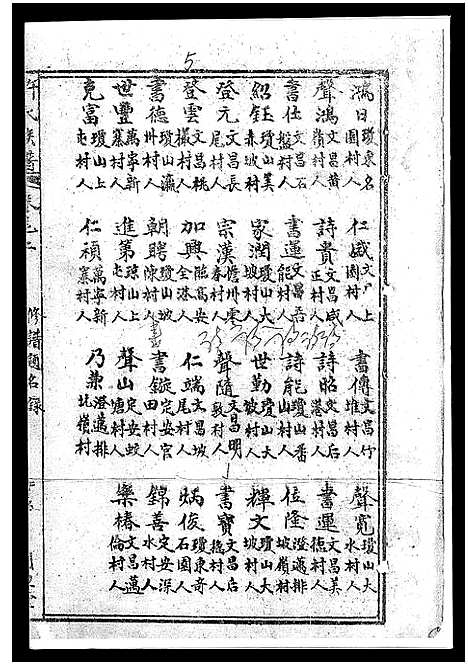 5
鴻日 瓊東名園村人
仁盛 文昌上園村人
聲寬 瓊山大水村人
聲鴻 文昌黃嶺村人
詩貴 文昌咸正村人
書傳 文昌竹堆村人
書運 文昌美德村人
書仕 文昌石盤村人
書運 文昌吾能村人
詩昭 文昌后港村人
位隆 澄邁排坡嶺村人
紹鈺 瓊山美赤坡村人
家潤 瓊山大坡村人
詩能 瓊山番山村人
輝文 瓊山大坡村人
登元 文昌長尾村人
宗漢 儋州春村人
世勤 瓊山大坡村人
書寶 文昌后村人
登雲 文昌桃村人
加興 臨高安全港人
聲隨 文昌明敦村人
炳俊 瓊東奇石園人
書德 瓊山瀛州村人
朝聘 瓊山坡陳村人
仁端 文昌坡尾村人
錦善 定安深水村人
世豐 萬寧新寨村人
進第 瓊山上屯村人
書錠 定安官田村人
樂椿 文昌邁倫村人
克富 瓊山上屯村人
仁禎 萬寧新寨村人
聲山 定安蛟塘村人
乃業 澄邁排坑嶺村
許氏族譜 卷之二 修譜題名錄